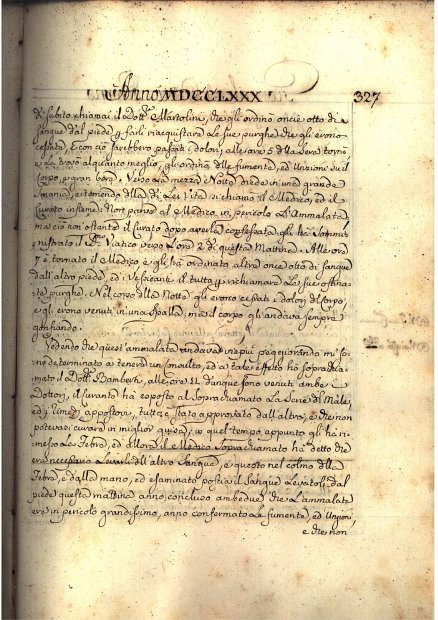 Anno MDCCLXXX 327
di subito chiamai il Dott.r Martolini, che gli ordino oncie otto di
sangue dal piede p farli riacquistare le sue purghe che gli erono
cessate, e con cio sarebbero passati i dolori, alle ore 5 della sera tornò
e la trovò alquanto meglio, gli ordinò delle fumenta, ed unzioni su il
Corpo, e gran bere. Verso la mezza Notte diede in una grande
smania, e temendo della di Lei Vita si chiamò il Medico, ed il
Curato insieme. Non parve al Medico in pericolo L'Ammalata
ma cio non ostante il Curato dopo averla confessata gli ha somми
nistrato il S. Viatico verso L'ore 2 di questa Mattina. Alle ore
7 è tornato il Medico e gli ha ordinato altre once otto di sangue
dall'altro piede, ed i Vescicanti il tutto p richiamare le sue
purghe. Nel corso della Notte gli erono cessati i dolori del Corpo,
e gli erono venuti in una spalla, ma il corpo gli andava sempre
gonfiando.
Vedendo che quest'ammalata andava in piu peggiorando mi sono
determinato a tenere un consulto, ed a tale effetto ho soprachia
mato il Dott.r Bamberti, alle ore 11 dunque sono venuti ambe i
Dottori, il curante ha esposto al Sopradiamato la Serie di Male,
ed i Rimedi appostovi, tutto è stato approvato dall'altro, e che non
potevasi curare in miglior guisa, in quel tempo appunto gli ha ri
messo La Febre, ed allora il Medico Sopradiamato ha detto che
era necessario Levare dell altro Sangue, e questo nel colmo della
Febre, e dalla mano, ed esaminato poscia il sangue Levatoli dal
piede questa mattina anno concluso ambedue che L'ammalata
era in pericolo grandissimo, anno confermato Le fumente, ed Unzioni
e che non